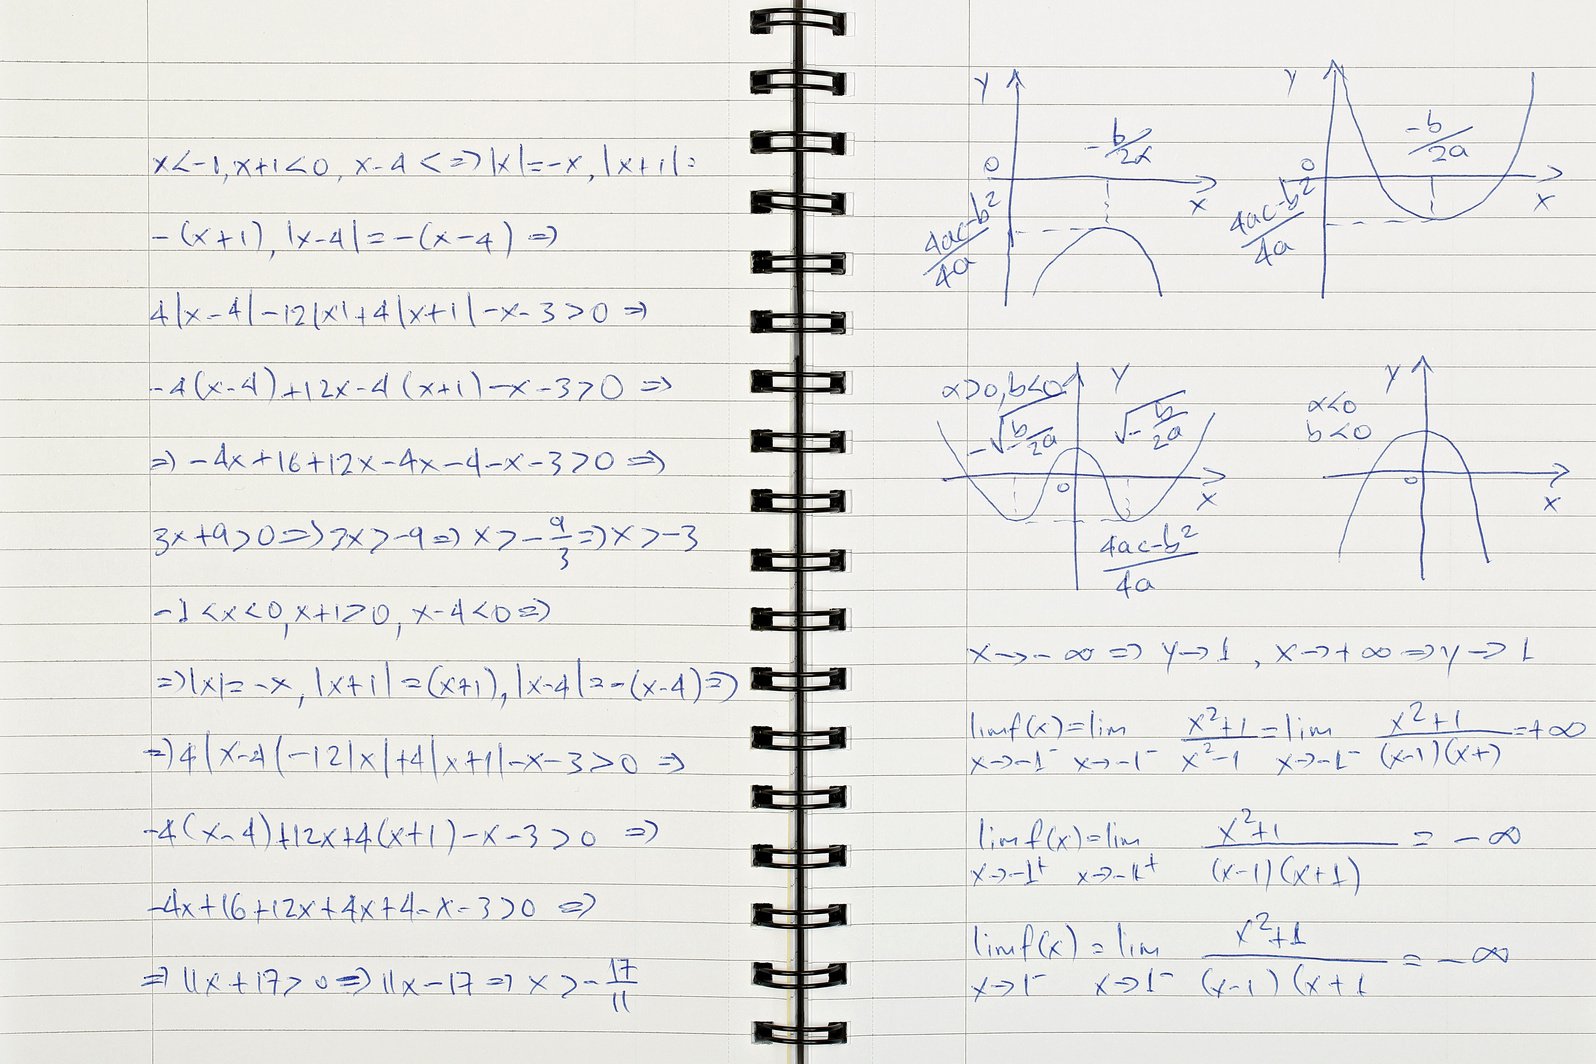 x<-1, x+1<0, x-4< => |x|=-x, |x+1|=
-(x+1), |x-4|=-(x-4) =>
4|x-4|-12|x|+4|x+1|-x-3>0 =>
-4(x-4)+12x-4(x+1)-x-3>0 =>
=> -4x+16+12x-4x-4-x-3>0 =>
3x+9>0 => 3x>-9 => x>-9/3 => x>-3
-1<x<0, x+1>0, x-4<0 =>
=> |x|=-x, |x+1|=(x+1), |x-4|=-(x-4) =>
=> 4|x-4(-12|x|+4|x+1|-x-3>0 =>
-4(x-4)+12x+4(x+1)-x-3>0 =>
-4x+16+12x+4x+4-x-3>0 =>
=> 11x+17>0 => 11x-17 => x>-17/11
y
-b/2x
0
x
4ac-b²/4a
y
-b/2a
0
x
4ac-b²/4a
α>0, b<0
y
-√b/2a
√-b/2a
0
x
4ac-b²/4a
y
α<0
b<0
0
x
x→-∞ => y→1, x→+∞ => y→1
lim f(x)=lim x²+1/x²-1=lim x²+1/(x-1)(x+)=+∞
x→-1⁻ x→-1⁻ x→-1⁻
lim f(x)=lim x²+1/(x-1)(x+1) = -∞
x→-1⁺ x→-1⁺
lim f(x) = lim x²+1/(x-1)(x+1 = -∞
x→1⁻ x→1⁻